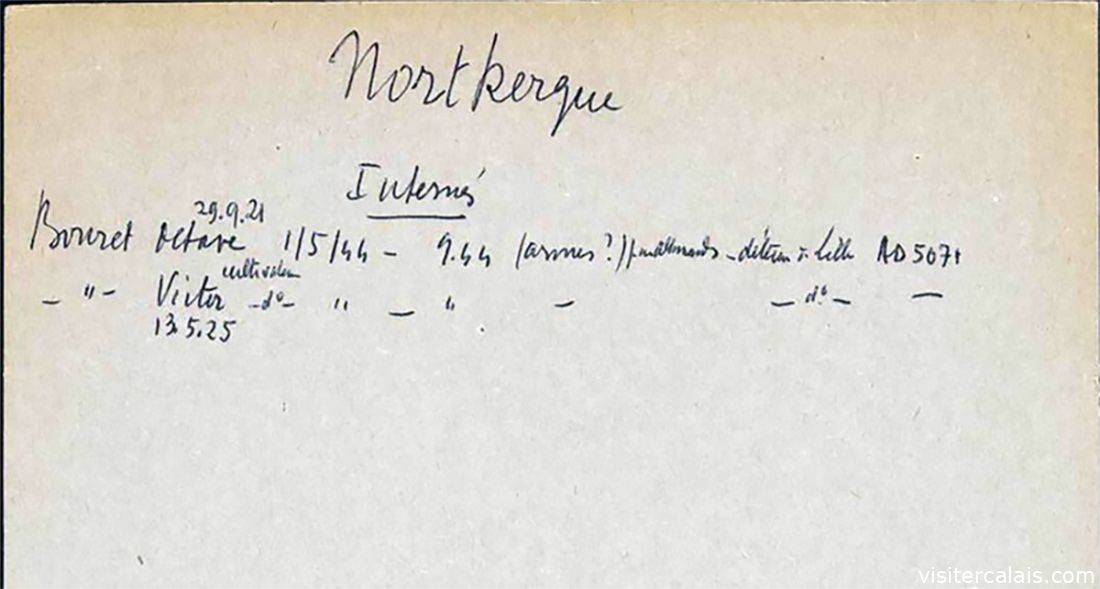 Nortkerque
Internés
29.9.21
Bouret Octave 1/5/44 – 9.44 (armes ?) p. allemands – déten. à Lille AD 5071
cultivateur
– " – Victor – d° – " – " – – d° – –
13.5.25
visitercalais.com